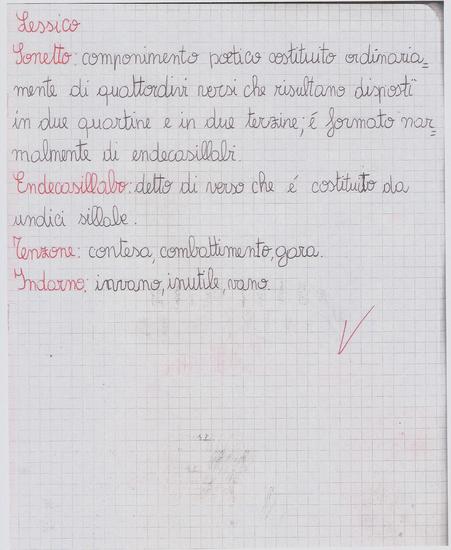 Lessico
Sonetto: componimento poetico costituito ordinaria=
mente di quattordivi versi che risultano disposti
in due quartine e in due terzine; é formato nar=
malmente di endecasillabi.
Endecasillabo: detto di verso che é costituito da
undici sillabe.
Tenzone: contesa, combattimento, gara.
Indarno: invano, inutile, vano.